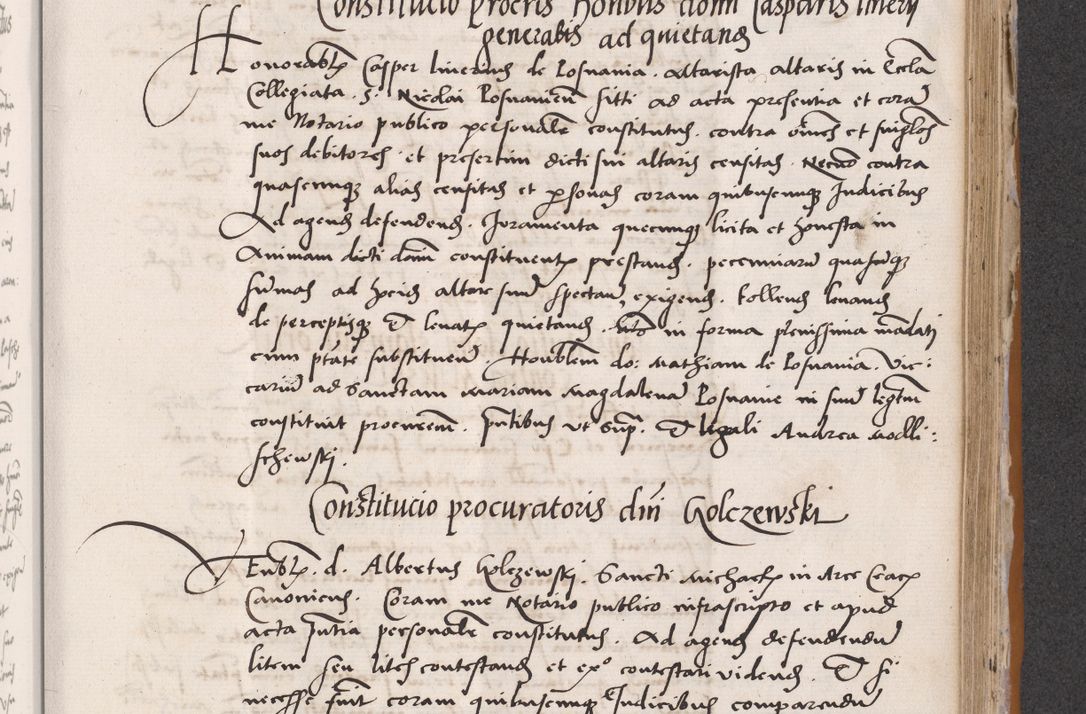 Constitucio procris honblis domini Casparis Linerii
generalis ad quietand
Honorablis Casper Linerius de Posnania. Altarista altaris in Eccla
Collegiata. S. Nicolai Posnanien siti ad acta presentia et coram
me Notario publico personalr constitutus. contra omes et singlos
suos debitores. et presertim dicti sui altaris censitas. Necno contra
quascunq alias censitas et psonas coram quibuscunq Iudicibus
Ad agend defendend. Juramenta quecunq licita et honesta in
Animam dicti domi constituentis prestand. pecuniaru quascuq
sumas ad ipsius altare suu spectan, exigend. tollend levand
de perceptisq et levatis quietand. in forma plenissima madati
cum ptate substituen Honblem do: Mathiam de Posnania. Vic:
cariu ad Sanctam Mariam Magdalena Posnanie in suu legtim
constituit procurem. pntibus ut supra. et Andrea Molli:
schewski.
Constitucio procuratoris dni Golczewski
Venblis. d. Albertus Golczewski. Sancti Michaelis in Arce Crac
Canonicus. Coram me Notario publico infrascripto et apud
acta pntia personalr constitutus. Ad agend defendendu
litem seu lites contestand et ex° contestari videnda. et si
necesse fuit coram quibuscunq Iudicibus comparendu